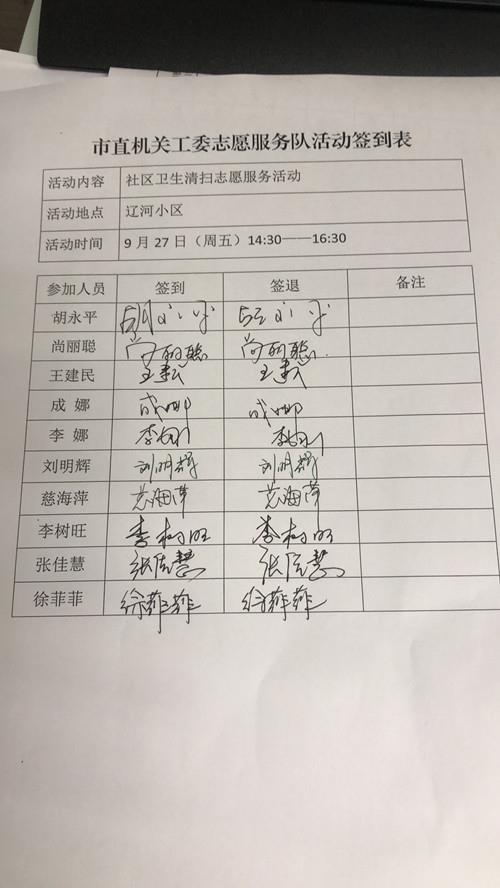 市直机关工委志愿服务队活动签到表
活动内容 社区卫生清扫志愿服务活动
活动地点 辽河小区
活动时间 9月27日（周五）14:30——16:30
参加人员 签到 签退 备注
胡永平 胡永平 胡永平
尚丽聪 尚丽聪 尚丽聪
王建民
成 娜 成娜 成娜
李 娜 李娜 李娜
刘明辉 刘明辉 刘明辉
慈海萍 慈海萍 慈海萍
李树旺 李树旺 李树旺
张佳慧 张佳慧 张佳慧
徐菲菲 徐菲菲 徐菲菲